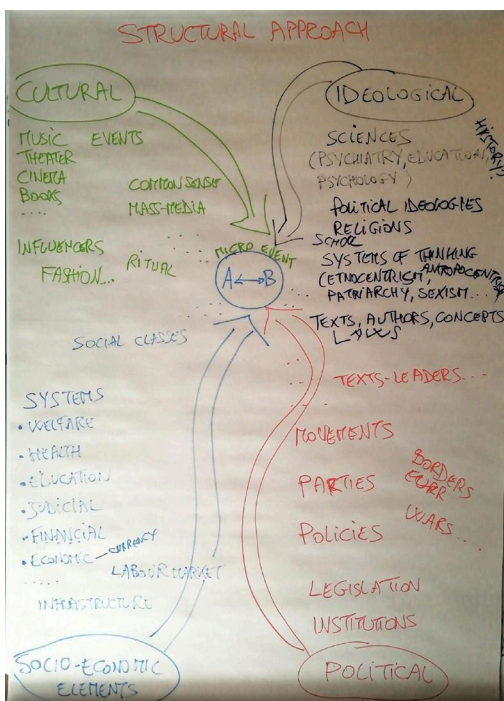 STRUCTURAL APPROACH
CULTURAL
MUSIC EVENTS
THEATER
CINEMA
BOOKS
....
COMMON SENSE
MASS-MEDIA
INFLUENCERS
FASHION...
RITUAL
IDEOLOGICAL
SCIENCES
(PSYCHIATRY, EDUCATION,
PSYCHOLOGY)
POLITICAL IDEOLOGIES
RELIGIONS
SYSTEMS OF THINKING
(ETNOCENTRISM,
PATRIARCHY, SEXISM...
TEXTS, AUTHORS, CONCEPTS
LAWS
MICRO EVENT
A ↔ B
SOCIAL CLASSES
SYSTEMS
• WELFARE
• HEALTH
• EDUCATION
• JUDICIAL
• FINANCIAL
• ECONOMIC - CURRENCY
.....
LABOUR MARKET
INFRASTRUCTURE
SOCIO-ECONOMIC
ELEMENTS
TEXTS-LEADERS...
MOVEMENTS
PARTIES
POLICIES
LEGISLATION
INSTITUTIONS
BORDERS
WARS...
POLITICAL